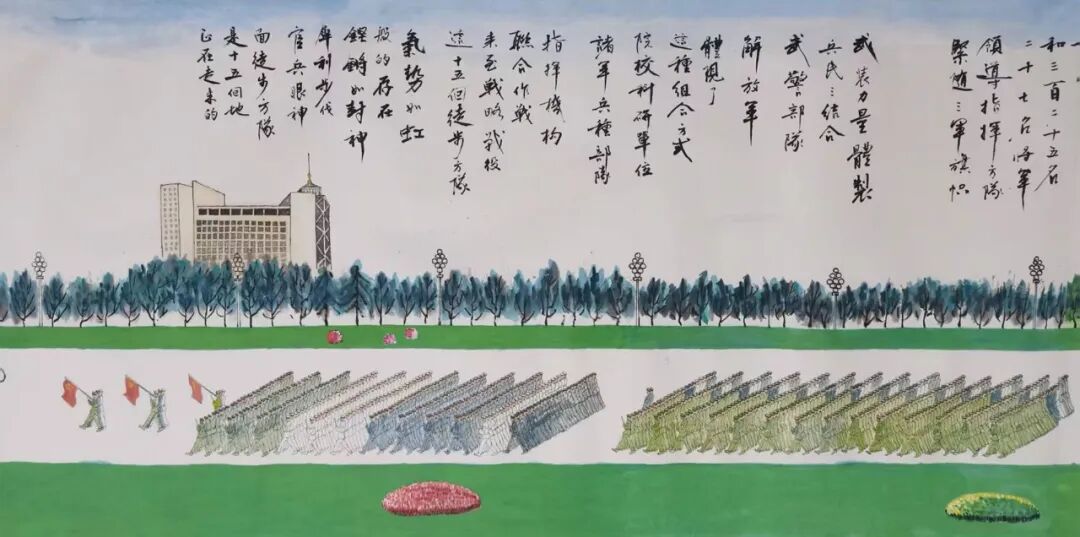 和三百二十五名
二十七名将軍
領導指揮方隊
緊随三軍旗幟
武装力量體製
兵民三結合
武警部隊
解放軍
體現了
這種組合方式
院校科研單位
諸軍兵種部隊
指揮機构
聯合作戰
来至戰略戰役
這十五個徒步方隊
氣勢如虹
般的存在
鏗鏘如封神
犀利步伐
官兵眼神
面徒步方隊
是十五個地
正在走来的